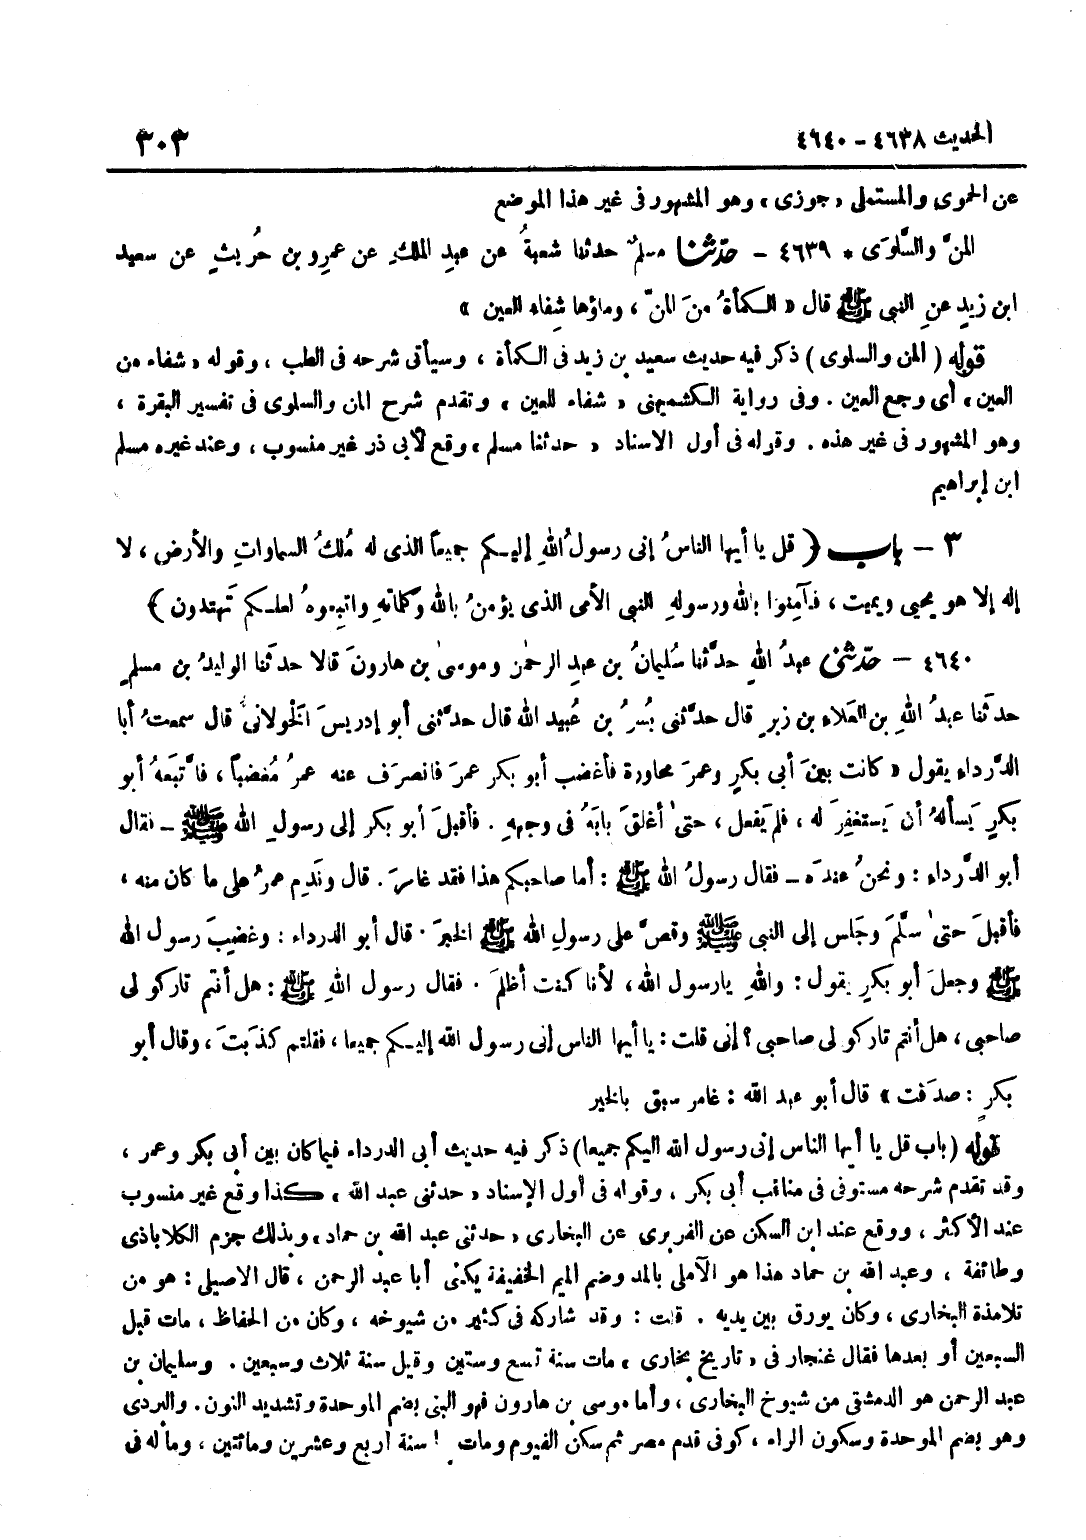 الحديث ٤٦٣٨ - ٤٦٤٠
٣٠٣
عن الحموى والمستملى « جوزى » وهو المشهور فى غير هذا الموضع
المنَّ والسَّلوَى * ٤٦٣٩ - حدّثنا مسلمٌ حدثنا شعبةُ عن عبدِ الملكِ عن عمرِو بن حُريثٍ عن سعيد
ابن زيدٍ عنِ النبى ﷺ قال « الكمأةُ منَ المنّ ، وماؤها شِفاء العين »
قوله ( المن والسلوى ) ذكر فيه حديث سعيد بن زيد فى الكمأة ، وسيأتى شرحه فى الطب ، وقوله « شفاء من
العين » أى وجع العين . وفى رواية الكشميهنى « شفاء للعين » وتقدم شرح المن والسلوى فى تفسير البقرة ،
وهو المشهور فى غير هذه . وقوله فى أول الاسناد « حدثنا مسلم » وقع لأبى ذر غير منسوب ، وعند غيره مسلم
ابن إبراهيم
٣ - باب ( قل يا أيها الناسُ إنى رسولُ اللهِ إليكم جميعاً الذى له مُلكُ السماواتِ والأرض ، لا
إله إلا هو يحيى ويميت ، فآمِنوا باللهِ ورسولهِ النبى الأمى الذى يؤمنُ باللهِ وكلماتهِ واتبِعوهُ لعلكم تَهتدون )
٤٦٤٠ - حدّثنى عبدُ اللهِ حدَّثنا سُليمانُ بن عبدِ الرحمٰن وموسىٰ بن هارونَ قالا حدثنا الوليدُ بن مسلمٍ
حدثنا عبدُ اللهِ بن العَلاء بن زبرٍ قال حدَّثنى بُسرُ بن عُبيد الله قال حدَّثنى أبو إدريسَ الخَولانىُّ قال سمعتُ أبا
الدَّرداءِ يقول « كانت بينَ أبى بكرٍ وعمرَ محاورة فأغضب أبو بكر عمرَ فانصرَف عنه عمرُ مُغضباً ، فاتَّبَعهُ أبو
بكرٍ يَسألهُ أن يَستغفِرَ له ، فلم يَفعل ، حتىٰ أغلقَ بابَهُ فى وجههِ . فأقبلَ أبو بكر إلى رسولِ الله ﷺ - فقال
أبو الدَّرداء : ونحنُ عندَه - فقال رسولُ الله ﷺ : أما صاحبكم هذا فقد غامرَ . قال وندِم عمرُ على ما كان منه ،
فأقبلَ حتىٰ سلَّمَ وجَلس إلى النبى ﷺ وقصَّ على رسولِ الله ﷺ الخبرَ . قال أبو الدرداء : وغضِبَ رسول الله
ﷺ وجعلَ أبو بكرٍ يقول : واللهِ يارسول الله ، لأنا كنت أظلمَ . فقال رسول اللهِ ﷺ : هل أنتم تاركو لى
صاحبى ، هل أنتم تاركو لى صاحبى ؟ إنى قلت : يا أيها الناس إنى رسول الله إليكم جميعا ، فقلتم كذبتَ ، وقال أبو
بكرٍ : صدَقت » قال أبو عبد الله : غامر سبق بالخير
قوله ( باب قل يا أيها الناس إنى رسول الله اليكم جميعا ) ذكر فيه حديث أبى الدرداء فيما كان بين أبى بكر وعمر ،
وقد تقدم شرحه مستوفى فى مناقب أبى بكر ، وقوله فى أول الإسناد « حدثنى عبد الله » كذا وقع غير منسوب
عند الأكثر ، ووقع عند ابن السكن عن الفربرى عن البخارى « حدثنى عبد الله بن حماد » وبذلك جزم الكلاباذى
وطائفة ، وعبد الله بن حماد هذا هو الآملى بالمد وضم الميم الخفيفة يكنى أبا عبد الرحمن ، قال الاصيلى : هو من
تلامذة البخارى ، وكان يورق بين يديه . قلت : وقد شاركه فى كثير من شيوخه ، وكان من الحفاظ ، مات قبل
السبعين أو بعدها فقال غنجار فى « تاريخ بخارى » مات سنة تسع وستين وقيل سنة ثلاث وسبعين . وسليمان بن
عبد الرحمن هو الدمشقى من شيوخ البخارى ، وأما موسى بن هارون فهو البنى بضم الموحدة وتشديد النون . والبردى
وهو بضم الموحدة وسكون الراء ، كوفى قدم مصر ثم سكن الفيوم ومات بها سنة اربع وعشرين ومائتين ، وما له فى